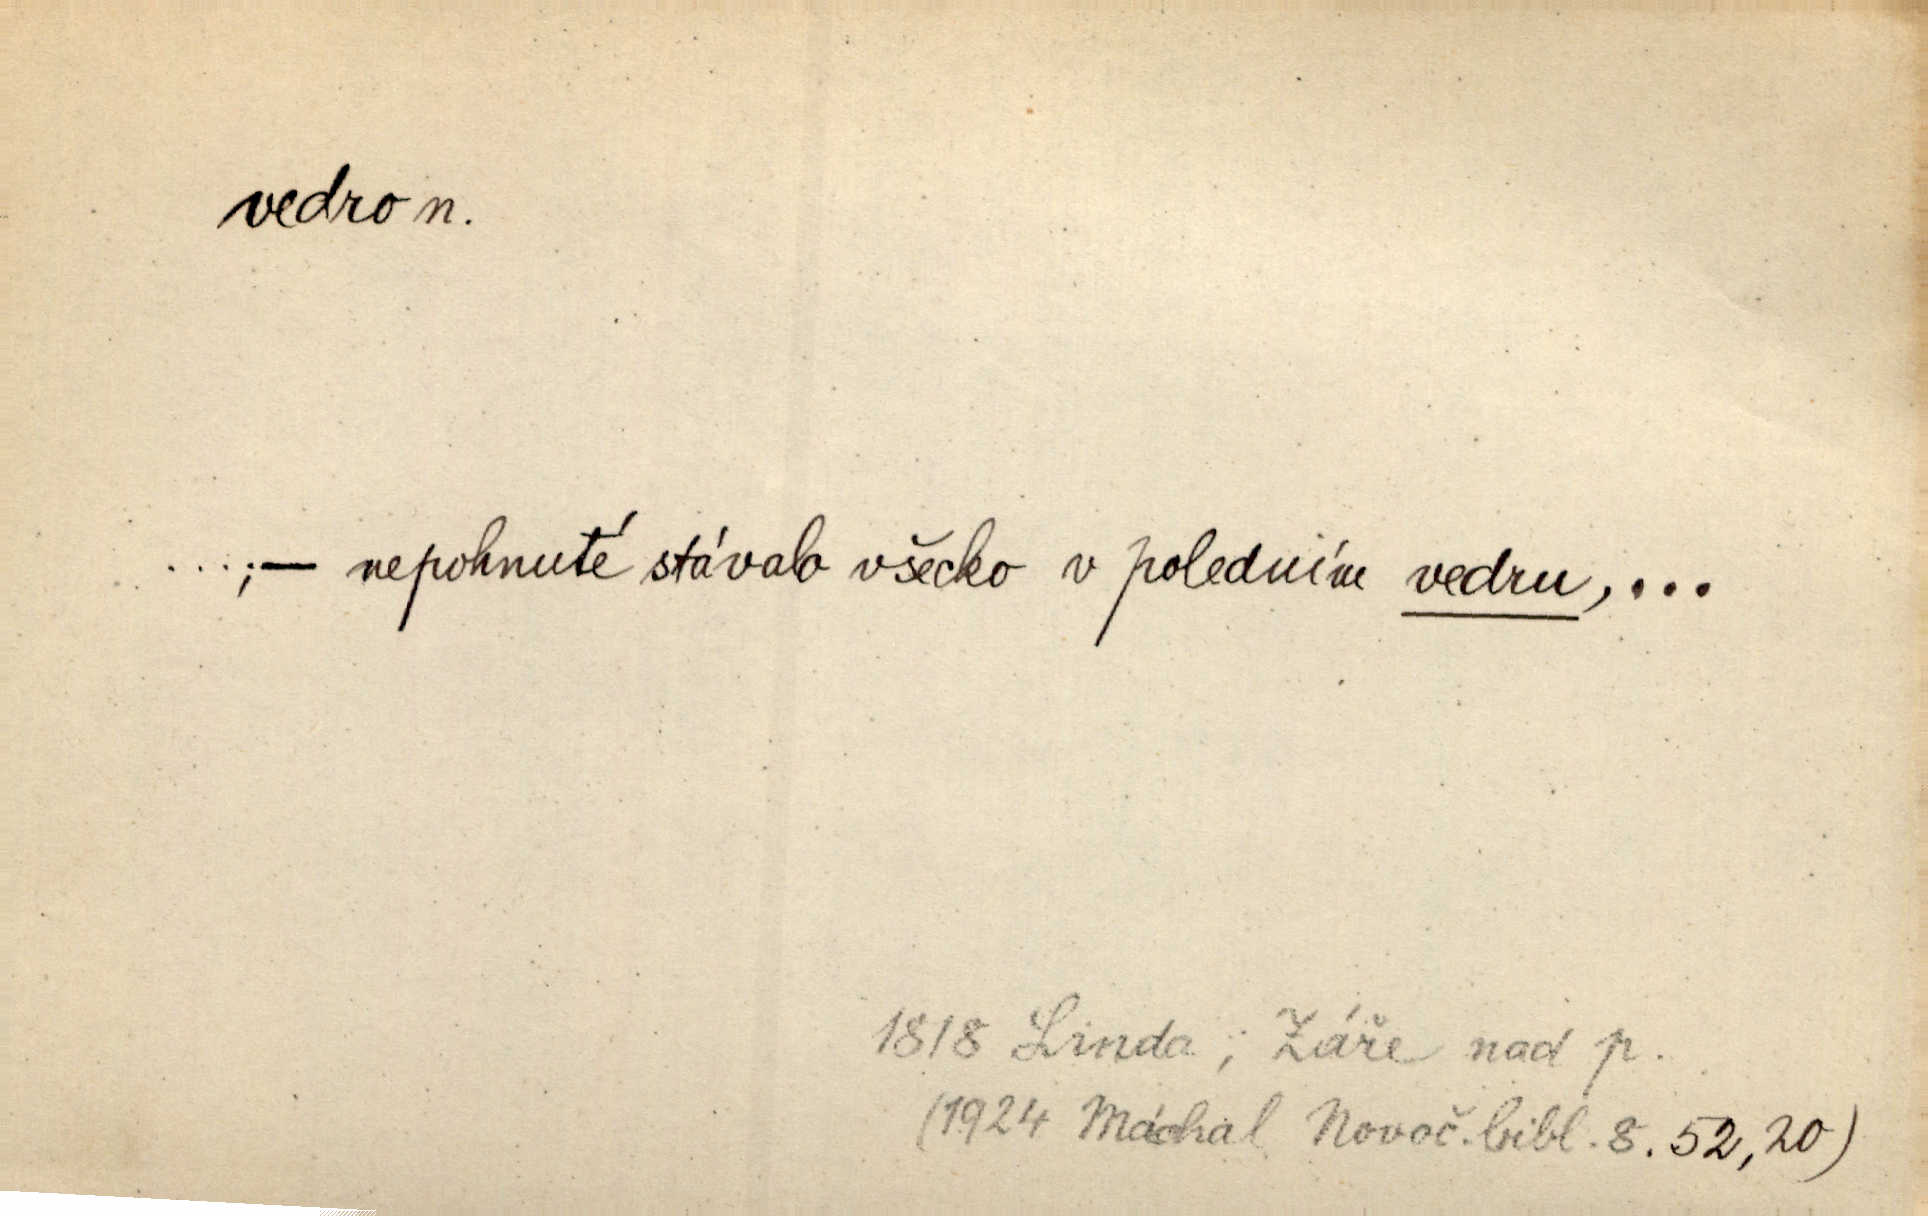 vedro n.
...;— nepohnuté stávalo všecko v poledním vedru,...
1818 Linda; Záře nad p.
(1924 Máchal Novoč. bibl. 8. 52,20)